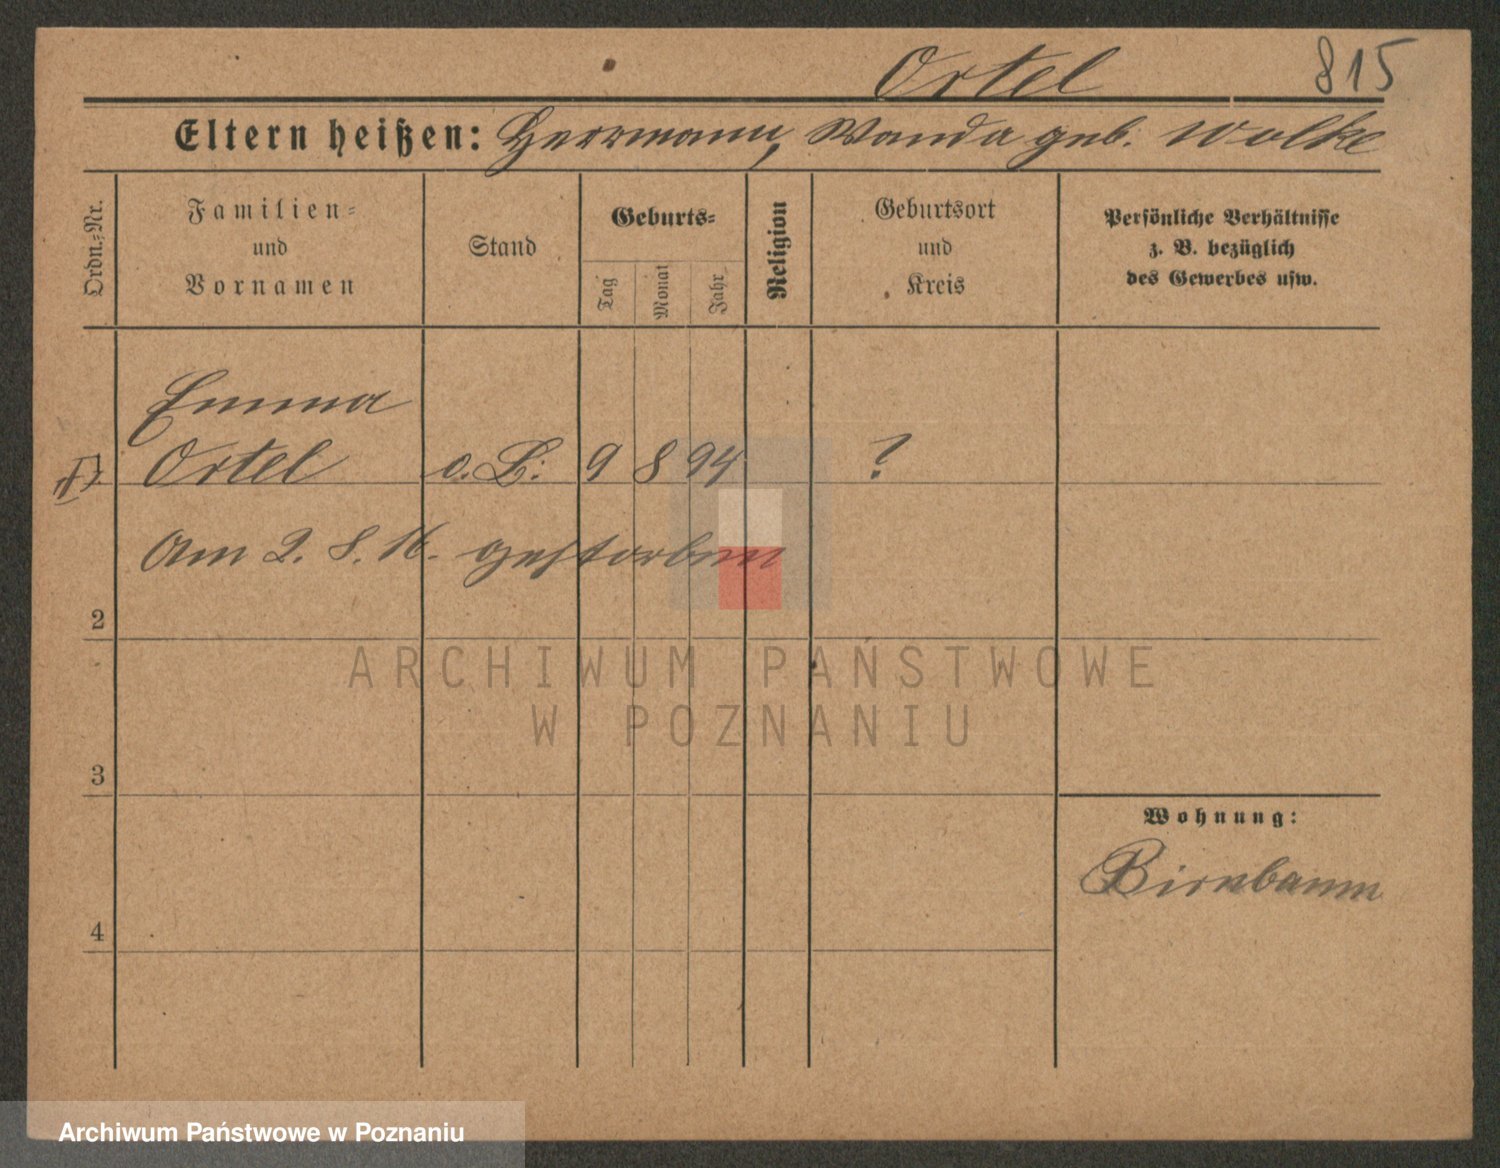 Ortel 815
Eltern heißen: Herrmann, Wanda geb. Wolke
Ordn.-Nr.
Familien-
und
Vornamen
Stand
Geburts-
Tag
Monat
Jahr
Religion
Geburtsort
und
Kreis
Persönliche Verhältnisse
z. B. bezüglich
des Gewerbes usw.
Emma
Ortel o. B. 9 8 94 ?
Am 2. 8. 16. gestorben
2
3
4
Wohnung:
Birnbaum
ARCHIWUM PAŃSTWOWE
W POZNANIU
Archiwum Państwowe w Poznaniu